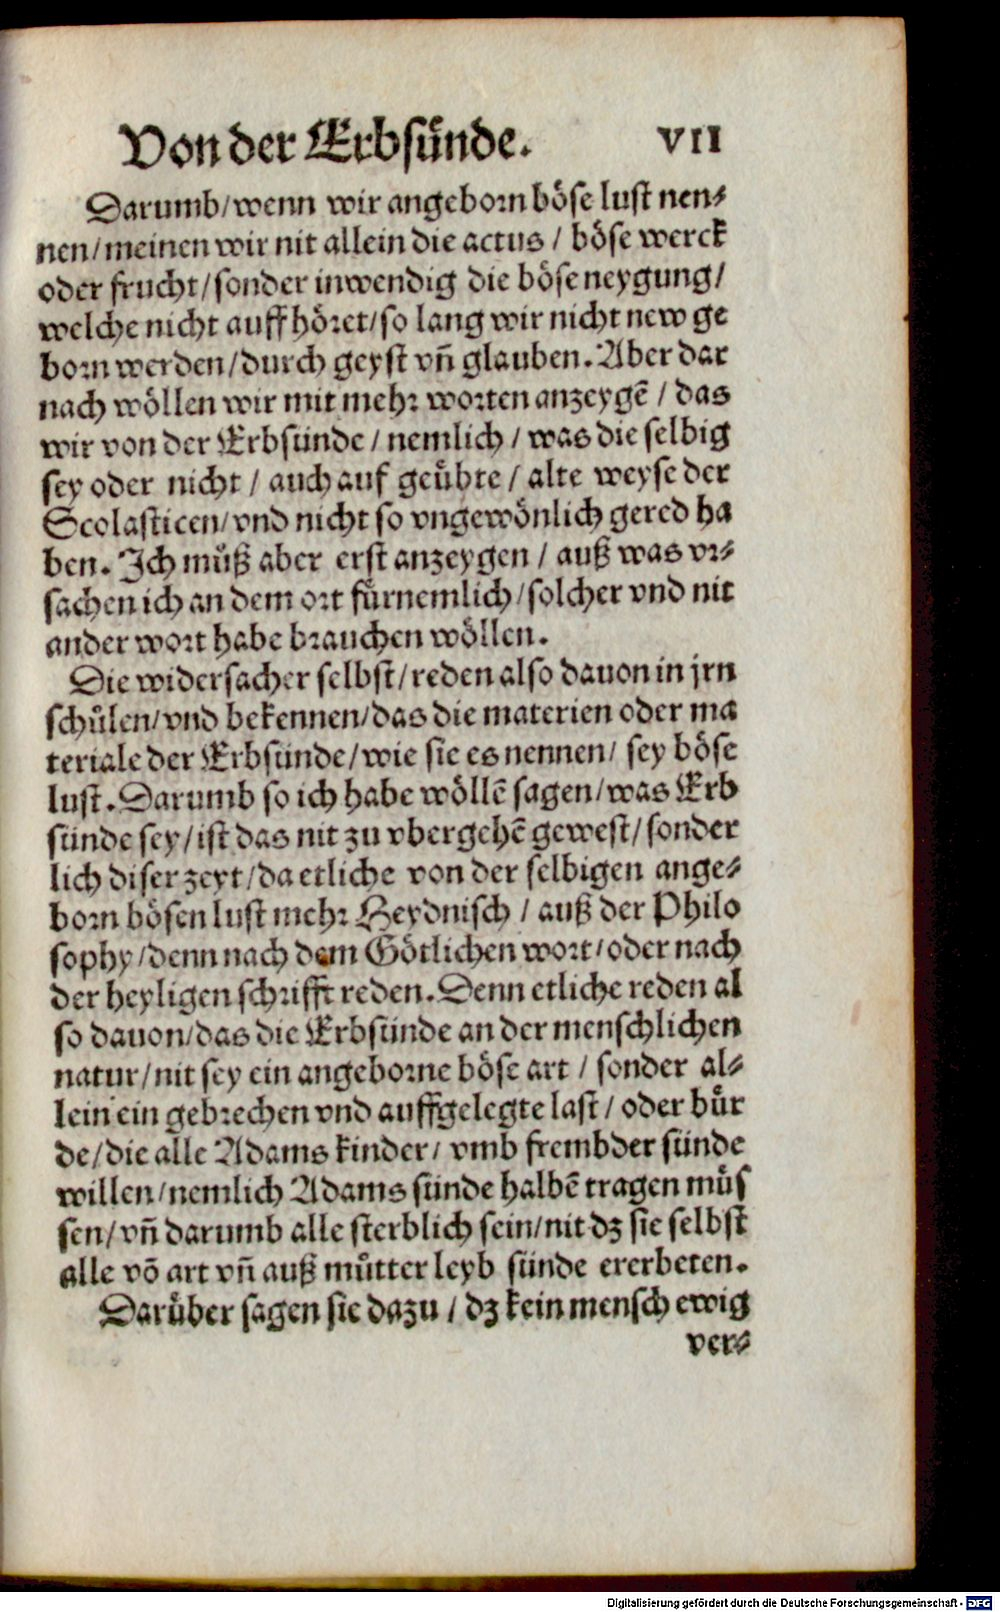 Von der Erbsünde. VII
Darumb/wenn wir angeborn böse lust nen⸗
nen/meinen wir nit allein die actus / böse werck
oder frucht/sonder inwendig die böse neygung/
welche nicht auffhöret/so lang wir nicht new ge
born werden/durch geyst vñ glauben. Aber dar
nach wöllen wir mit mehr worten anzeygẽ / das
wir von der Erbsünde / nemlich / was die selbig
sey oder nicht / auch auf geübte / alte weyse der
Scolasticen/vnd nicht so vngewönlich gered ha
ben. Ich müß aber erst anzeygen / auß was vr⸗
sachen ich an dem ort fürnemlich/solcher vnd nit
ander wort habe brauchen wöllen.
Die widersacher selbst/reden also dauon in jrn
schůlen/vnd bekennen/das die materien oder ma
teriale der Erbsünde/wie sie es nennen/ sey böse
lust. Darumb so ich habe wöllẽ sagen/was Erb
sünde sey/ist das nit zu vbergehẽ gewest/sonder
lich diser zeyt/da etliche von der selbigen ange⸗
born bösen lust mehr Heydnisch / auß der Philo
sophy/denn nach dem Götlichen wort/oder nach
der heyligen schrifft reden. Denn etliche reden al
so dauon/das die Erbsünde an der menschlichen
natur/nit sey ein angeborne böse art / sonder al⸗
lein ein gebrechen vnd auffgelegte last/ oder bür
de/die alle Adams kinder/ vmb frembder sünde
willen/nemlich Adams sünde halbẽ tragen müs
sen/vñ darumb alle sterblich sein/nit dz sie selbst
alle võ art vñ auß můtter leyb sünde ererbeten.
Darüber sagen sie dazu / dz kein mensch ewig
ver⸗
Digitalisierung gefördert durch die Deutsche Forschungsgemeinschaft - DFG